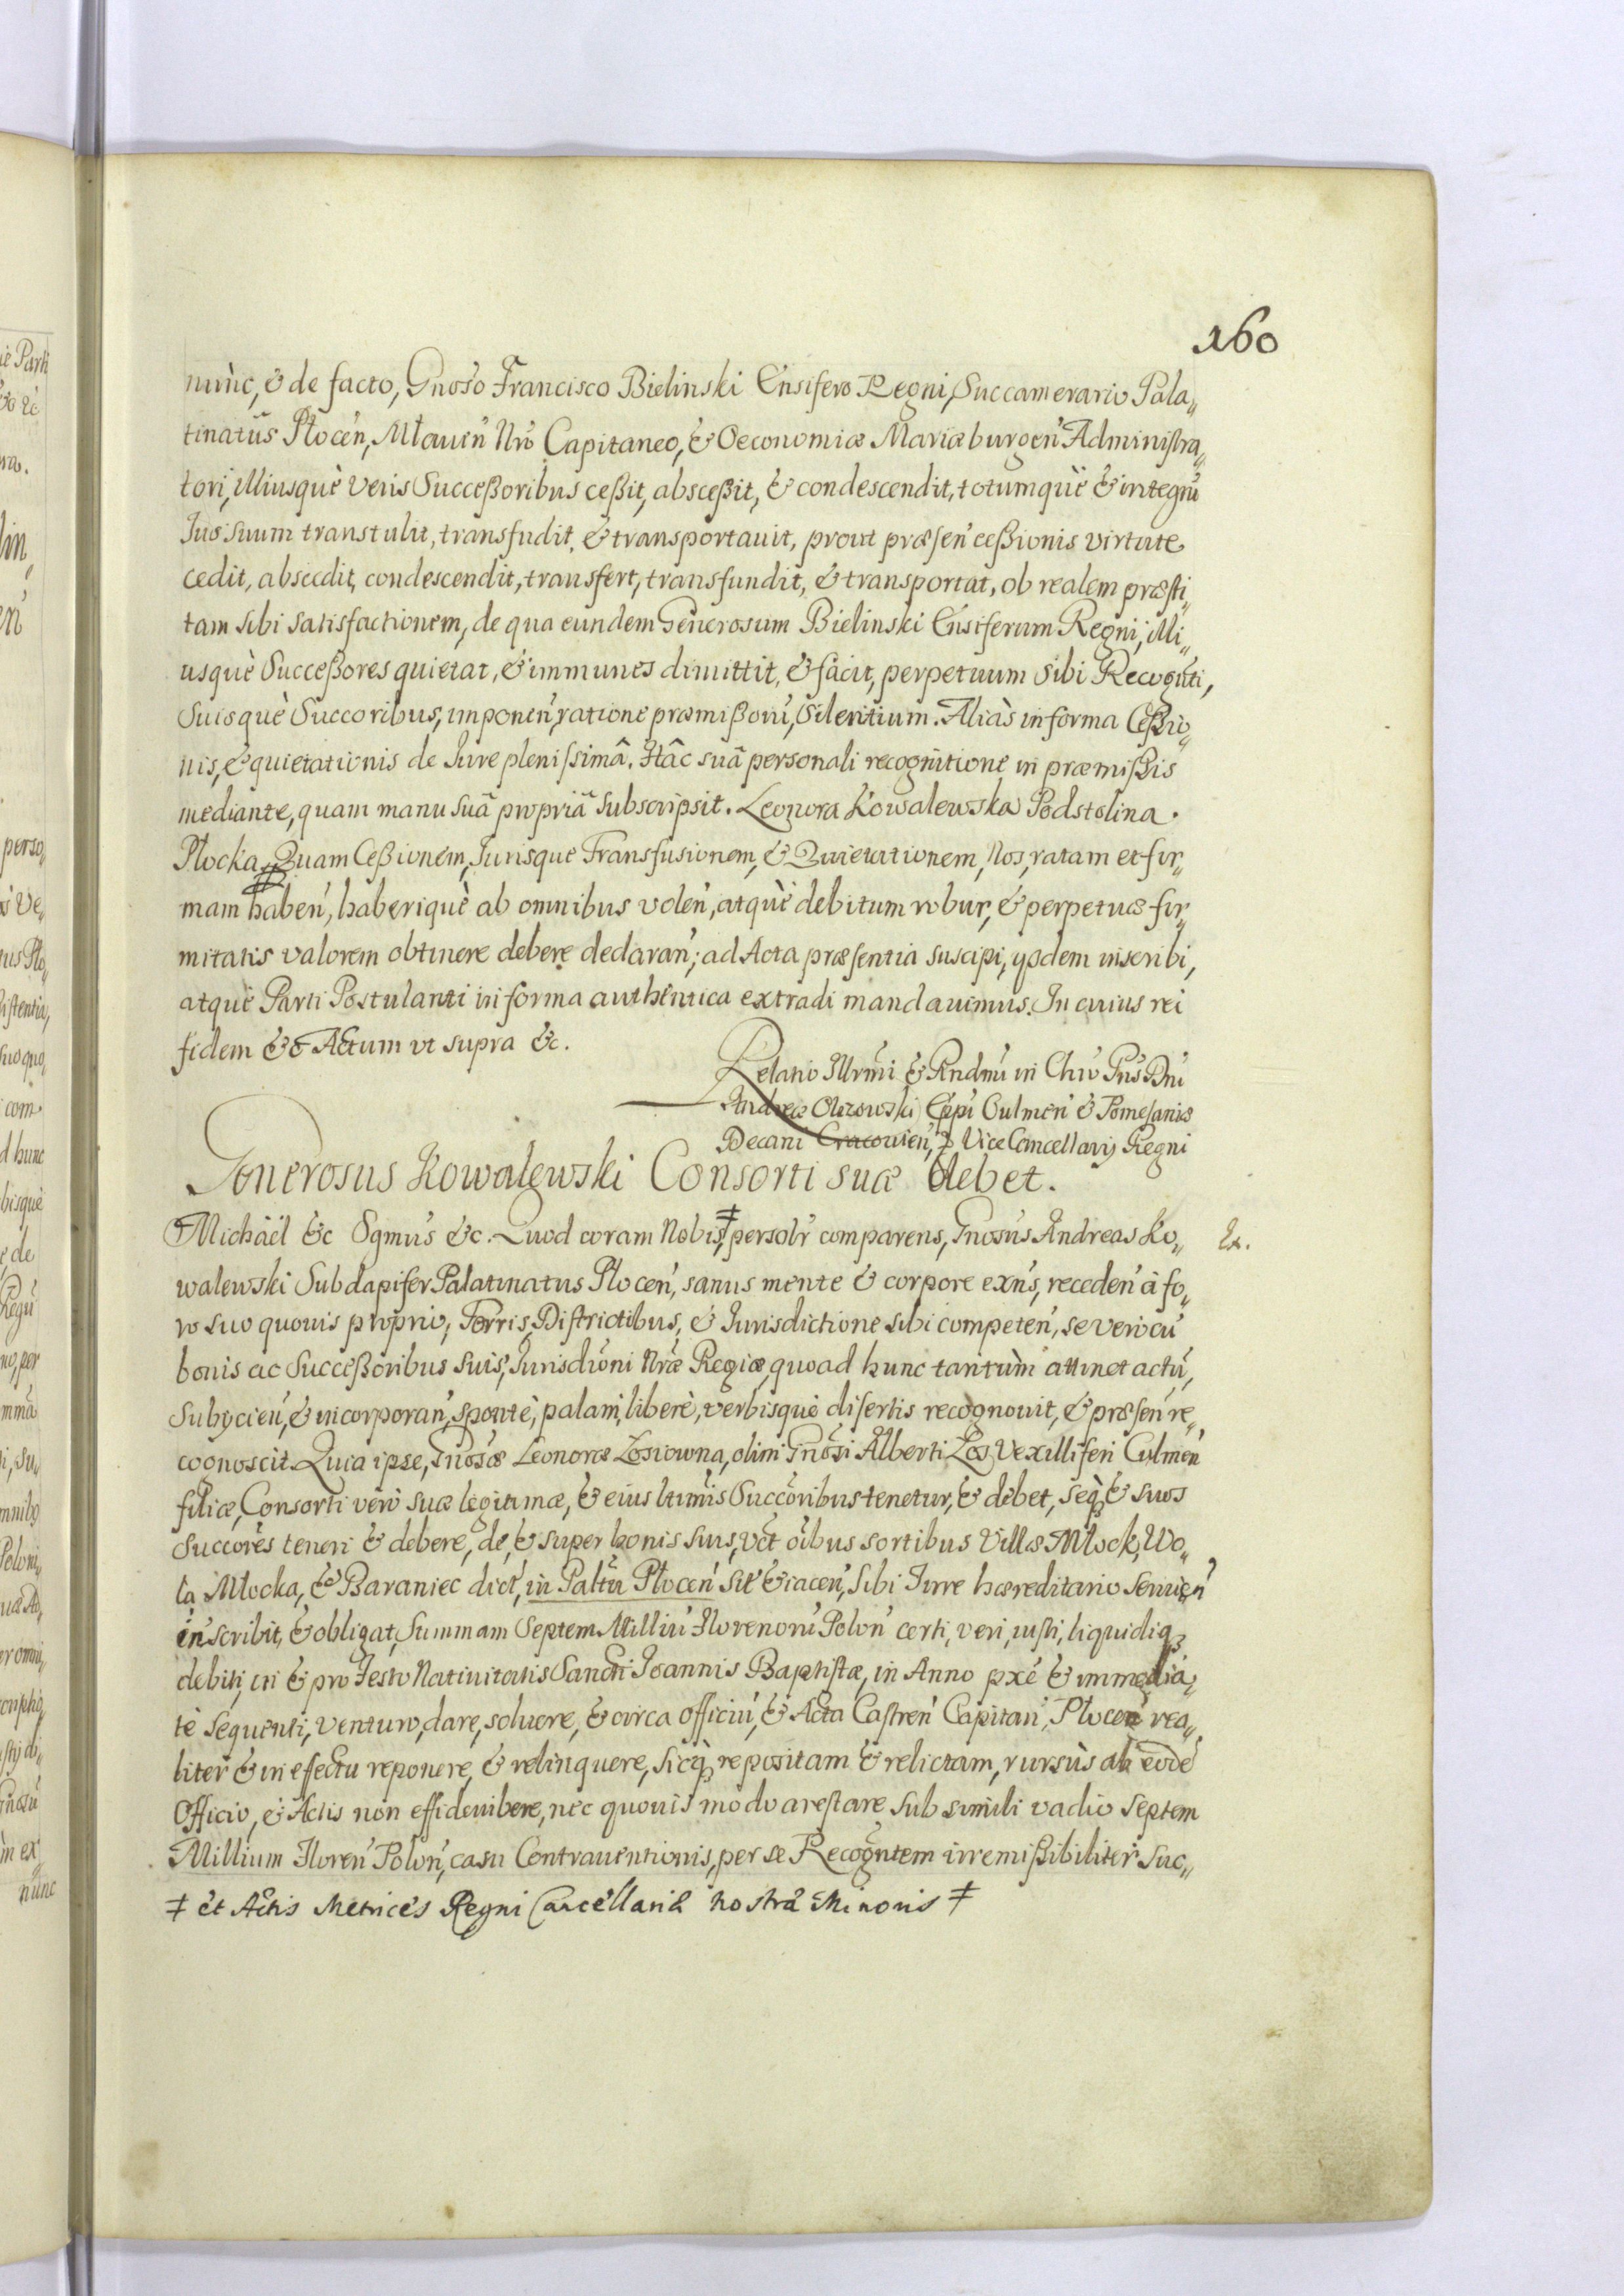 160
nunc, & de facto, Gnoso Francisco Bielinski Ensifero Regni, Succamerario Pala„
tinatus Płocen, Mławen Nro Capitaneo, & Oeconomiæ Mariæburgen Administra„
tori, illiusquè veris Successoribus cessit, abscessit, & condescendit, totumquè & integrũ
Jus suum transtulit, transfudit, & transportauit, prout præsen cessionis virtute
cedit, abscedit, condescendit, transfert, transfundit, & transportat, ob realem præsti„
tam sibi satisfactionem, de qua eundem Generosum Bielinski Ensiferum Regni, illi„
usquè Successores quietat, & immunes dimittit, & facit, perpetuum sibi Recognti,
Suisquè Succoribus, imponen, ratione præmissorũ, silentium. Aliàs in forma Cessio„
nis, & quietationis de Jure plenissimâ. Hâc suâ personali recognitione in præmissis
mediante, quam manu suâ propriâ subscripsit. Leonora Kowalewska Podstolina.
Płocka. Quam Cessionem, Jurisque Transfusionem, & Quietationem, Nos, ratam et fir„
mam haben, haberiquè ab omnibus volen, atquè debitum robur, & perpetuæ fir„
mitatis valorem obtinere debere declaran; ad Acta præsentia suscipi, ijsdem inscribi,
atquè Parti Postulanti in forma authentica extradi mandauimus. In cuius rei
fidem &c Actum vt supra &c.
Relatio Illrmi & Rndmi in Chro Pris Dni
Andreæ Olszowski Eppi Culmen & Pomesaniæ
Decani Cracouien, Vice Cancellarij Regni
Generosus Kowalewski Consorti suæ debet.
Michaël &c Sgmus &c. Quod coram Nobis ‡ persolr comparens, Gnosus Andreas Ko„
Ex.
walewski Subdapifer Palatinatus Płocen, sanus mente & corpore exns, receden à fo„
ro suo quouis proprio, Terris, Districtibus, & Jurisdictione sibi competen, se vero cũ
bonis ac Successoribus suis, Jurisdioni Nræ Regiæ, quoad hunc tantùm attinet actũ,
Subijcien, & incorporan, spontè, palam, liberè, verbisquè disertis recognouit, & præsen re„
cognoscit. Quia ipse, Gnosæ Leonoræ Łosiowna, olim Gnosi Alberti Łos Vexilliferi Culmen
filiæ, Consorti verò suæ legitimæ, & eius ltimis Succoribus tenetur, & debet, seq & suos
Succores teneri & debere, de, & super bonis suis, vct oibus sortibus Villæ Młock, Wo„
la Młocka, & Baraniec dict, in Paltu Płocen sit & iacen, sibi Jure hæreditario seruien
inscribit, & obligat, Summam Septem Milliũ Florenorũ Polon certi, veri, iusti, liquidiq
debiti, in & pro Festo Natiuitatis Sancti Joannis Baptistæ, in Anno pxe & immedia„
tè sequenti, venturo, dare, soluere, & circa officiũ, & Acta Castren Capitan, Płocen rea„
liter & in effectu reponere, & relinquere, sicq repositam & relictam, rursùs ab eodẽ
Officio, & Actis non effidenibere, nec quouis modo arestare sub simili vadio Septem
Millium Floren Polon, casu Contrauentionis, per se Recogntem irremissibiliter suc„
‡ et Actis Metrices Regni Cancellariæ nostræ Minoris ‡